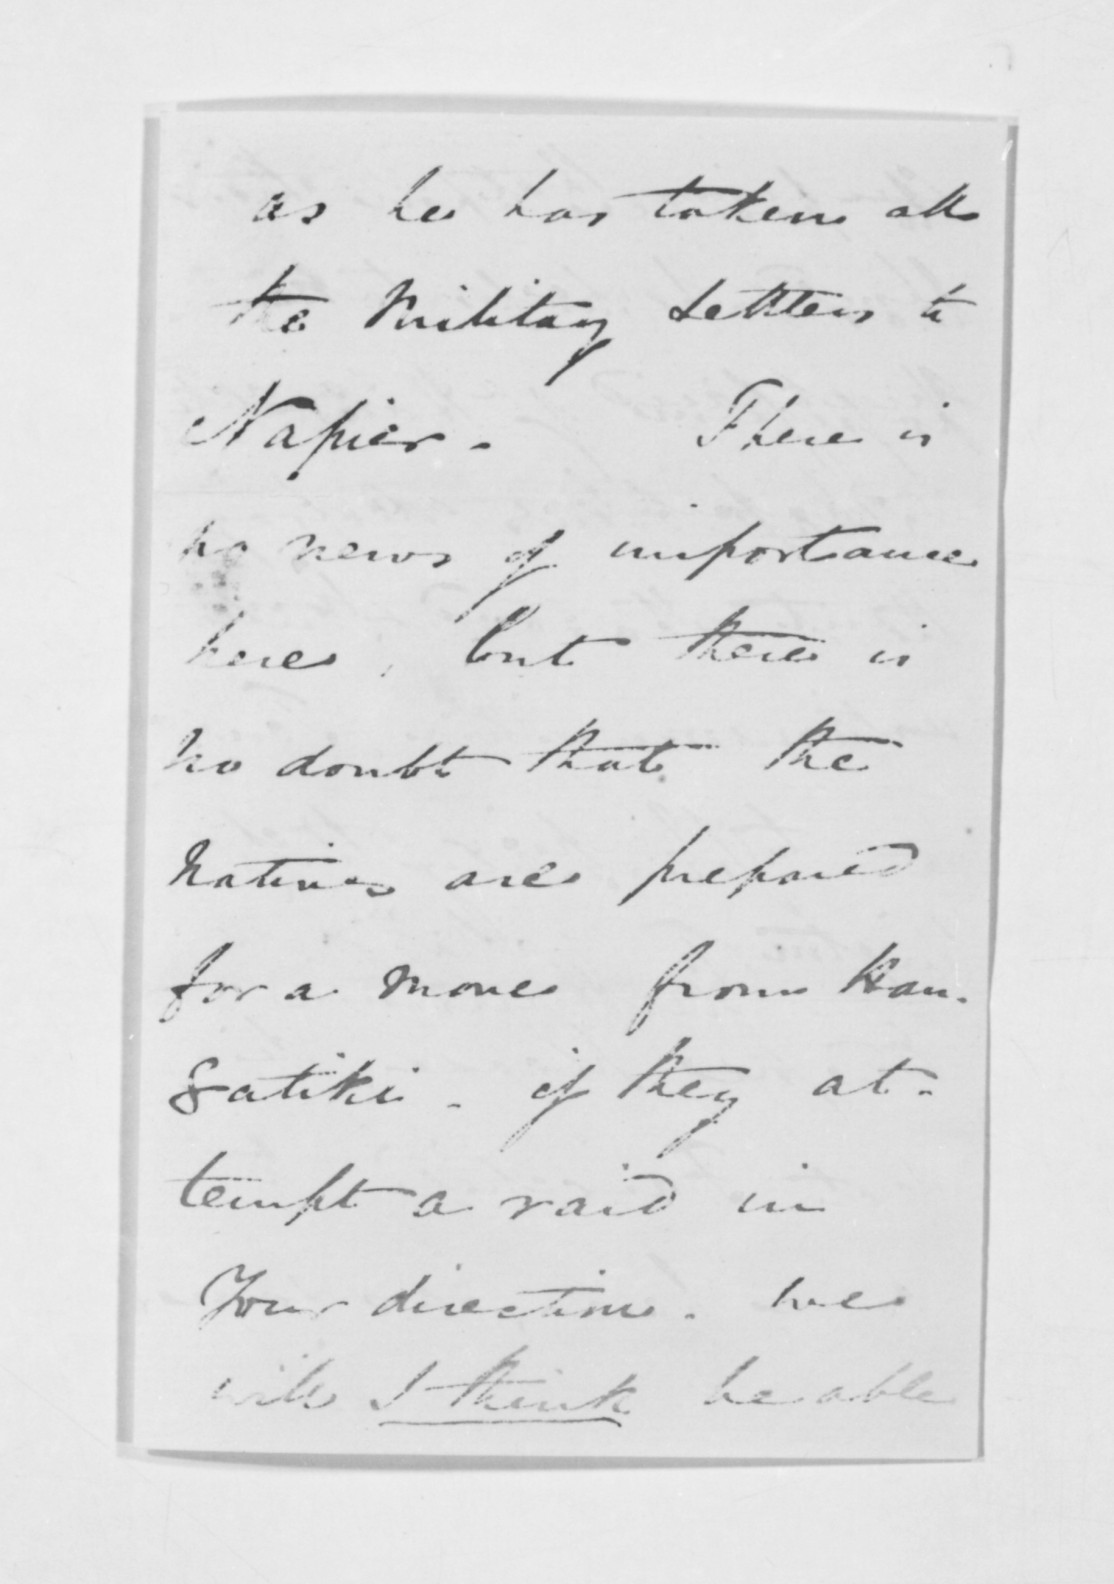 as he has taken all
the Military Letters to
Napier. There is
no news of importance
here, but there is
no doubt that the
Natives are prepared
for a move from Hau-
gatiki. if they at-
tempt a raid in
Your direction. we
will I think be able